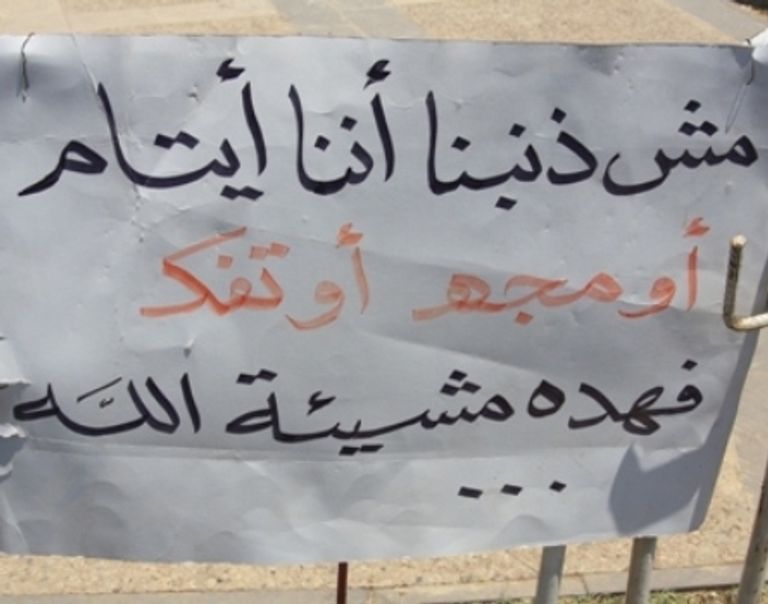 مش ذنبنا أننا أيتام
أو مجهـ أو تفكـ
فهده مشيئة الله
...